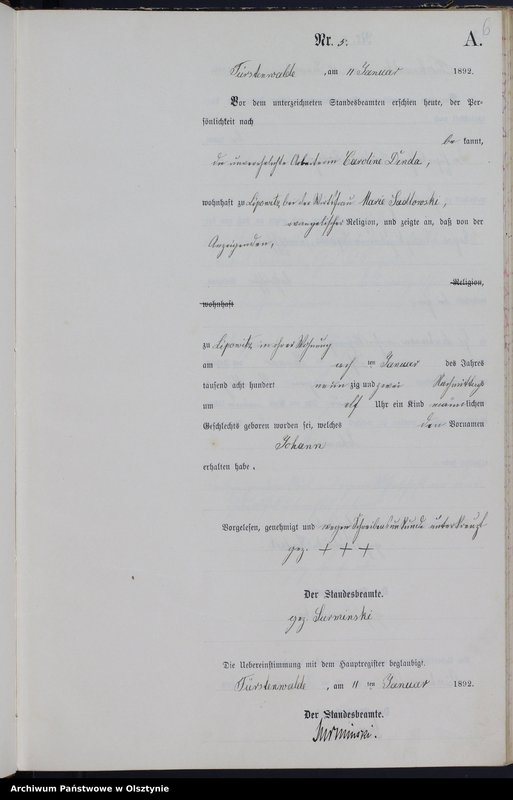 6
Nr. 5. A.
Fürstenwalde, am 11 Januar 1892.
Vor dem unterzeichneten Standesbeamten erschien heute, der Per-
sönlichkeit nach
be kannt,
die unverehelichte Arbeiterin Caroline Dznda,
wohnhaft zu Lipowitz bei der Wirthsfrau Marie Sadlowski,
evangelischer Religion, und zeigte an, daß von der
Anzeigenden,
Religion,
wohnhaft
zu Lipowitz in ihrer Wohnung
am acht ten Januar des Jahres
tausend acht hundert neun zig und zwei Nachmittags
um elf Uhr ein Kind männlichen
Geschlechts geboren worden sei, welches den Vornamen
Johann
erhalten habe.
Vorgelesen, genehmigt und wegen Schreibensunkunde unterkreuzt
gez. + + +
Der Standesbeamte.
gez Surminski
Die Uebereinstimmung mit dem Hauptregister beglaubigt.
Fürstenwalde, am 11 ten Januar 1892.
Der Standesbeamte.
Surminski.
Archiwum Państwowe w Olsztynie